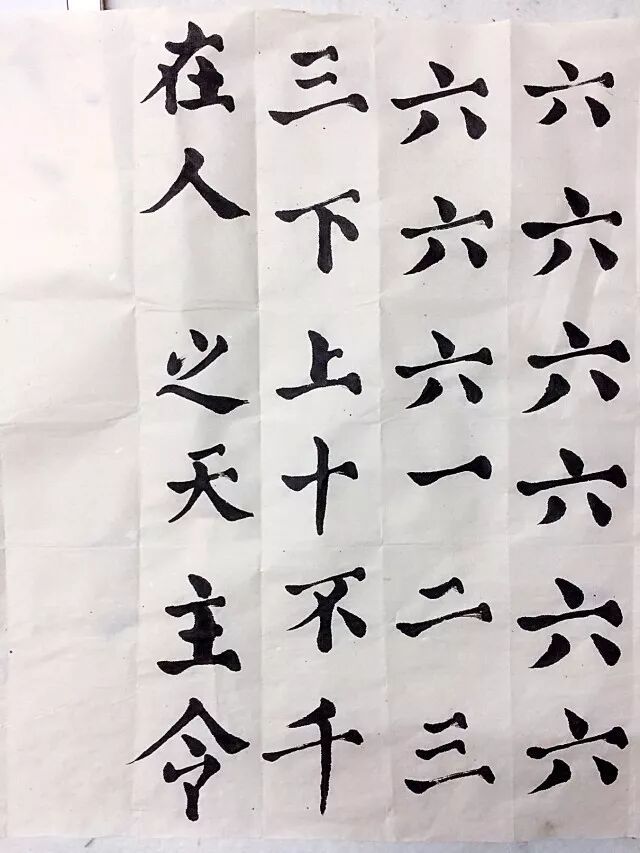 六六六六六六
六六六一二三
三下上十不千
在人之天主令